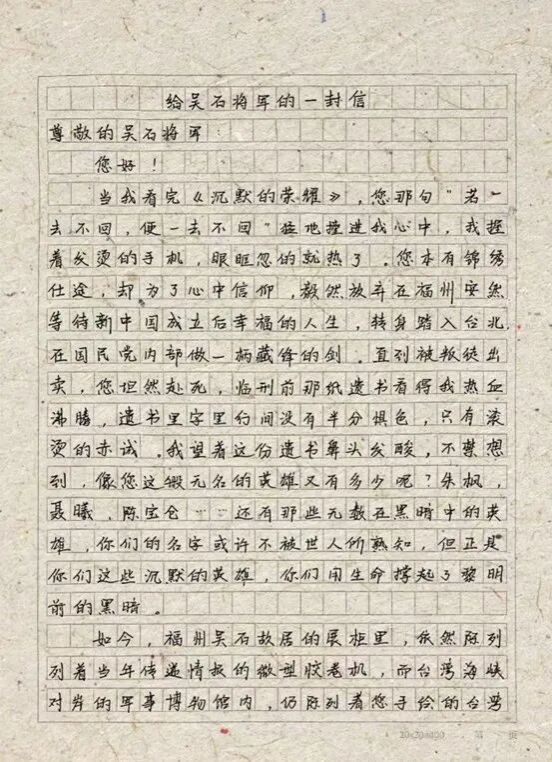 给吴石将军的一封信
尊敬的吴石将军：
您好！
当我看完《沉默的荣耀》，您那句“若一
去不回，便一去不回”猛地撞进我心中，我握
着发烫的手机，眼眶忽的就热了。您本有锦绣
仕途，却为了心中信仰，毅然放弃在福州安然
等待新中国成立后幸福的人生，转身踏入台北，
在国民党内部做一柄藏锋的剑。直到被叛徒出
卖，您坦然赴死，临刑前那纸遗书看得我热血
沸腾，遗书里字里行间没有半分惧色，只有滚
烫的赤诚。我望着这份遗书鼻头发酸，不禁想
到，像您这般无名的英雄又有多少呢？朱枫，
聂曦，陈宝仓……还有那些无数在黑暗中的英
雄，你们的名字或许不被世人所熟知，但正是
你们这些沉默的英雄，你们用生命撑起了黎明
前的黑暗。
如今，福州吴石故居的展柜里，依然陈列
列着当年传递情报的微型胶卷机，而台湾海峡
对岸的军事博物馆内，仍陈列着您手绘的台湾
20×20=400 第 页